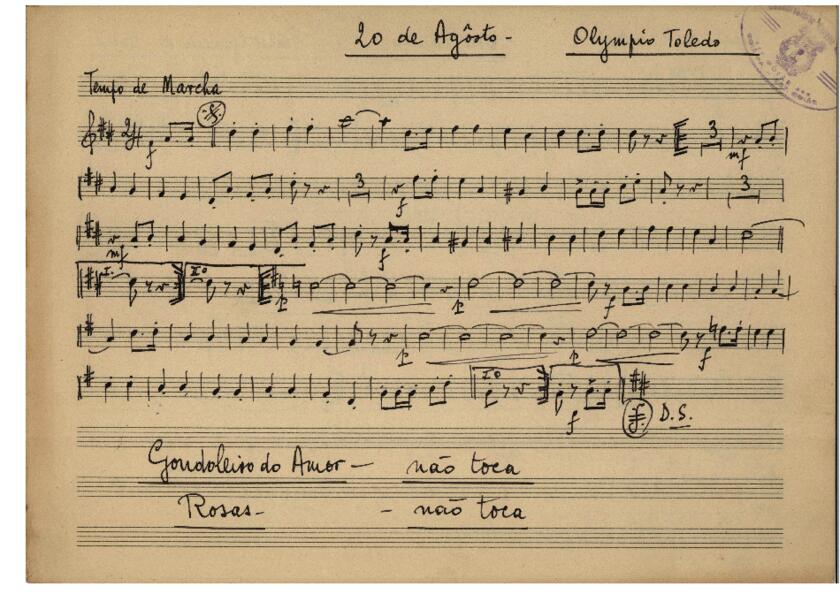 20 de Agôsto - Olympio Toledo
Tempo de Marcha
2/4 f
3 3 mf
3 f 3
mf f
I. II
p p f
p p f
I II
f D.S.
Gondoleiro do Amor - não toca
Rosas - - não toca